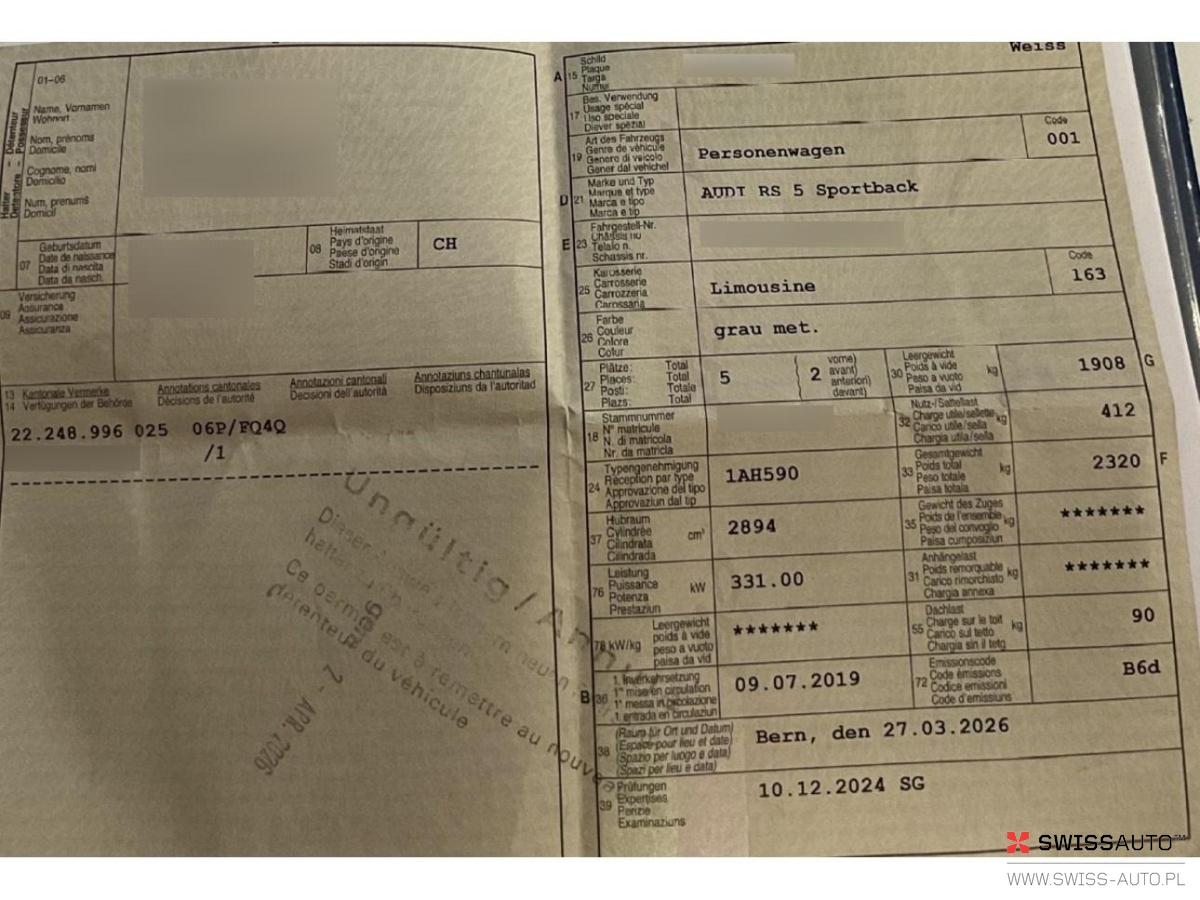 01-06
Halter - Détenteur
Detentore - Possessur
Name, Vornamen
Wohnort
Nom, prénoms
Domicile
Cognome, nomi
Domicilio
Num, prenums
Domicil
07
Geburtsdatum
Date de naissance
Data di nascita
Data da nasch.
08
Heimatstaat
Pays d'origine
Paese d'origine
Stadi d'origin
CH
09
Versicherung
Assurance
Assicurazione
Assicuranza
13 Kantonale Vermerke
14 Verfügungen der Behörde
Annotations cantonales
Décisions de l'autorité
Annotazioni cantonali
Decisioni dell'autorità
Annotaziuns chantunalas
Disposiziuns da l'autoritad
22.248.996 025 06P/FQ4Q
/1
Ungültig /
Ce permis est à remettre au nouveau
détenteur du véhicule
7 - APR. 2026
A 15
Schild
Plaque
Targa
Numer
Weiss
17
Bes. Verwendung
Usage spécial
Uso speciale
Diever spezial
19
Art des Fahrzeugs
Genre de véhicule
Genere di veicolo
Gener dal vehichel
Personenwagen
Code
001
D 21
Marke und Typ
Marque et type
Marca e tipo
Marca e tip
AUDI RS 5 Sportback
E 23
Fahrgestell-Nr.
Châssis no
Telaio n.
Schassis nr.
25
Karosserie
Carrosserie
Carrozzeria
Carossaria
Limousine
Code
163
26
Farbe
Couleur
Colore
Colur
grau met.
27
Plätze: Total
Places: Total
Posti: Totale
Plazs: Total
5
2
vorne)
avant)
anteriori)
davant)
30
Leergewicht
Poids à vide
Peso a vuoto
Paisa da vid
kg
1908 G
18
Stammnummer
N° matricule
N. di matricola
Nr. da matricla
32
Nutz-/Sattellast
Charge utile/sellette
Carico utile/sella
Chargia utila/sella
kg
412
24
Typengenehmigung
Réception par type
Approvazione del tipo
Approvaziun dal tip
1AH590
33
Gesamtgewicht
Poids total
Peso totale
Paisa totala
kg
2320 F
37
Hubraum
Cylindrée
Cilindrata
Cilindrada
cm³
2894
35
Gewicht des Zuges
Poids de l'ensemble
Peso del convoglio
Paisa cumposiziun
kg
*******
76
Leistung
Puissance
Potenza
Prestaziun
kW
331.00
31
Anhängelast
Poids remorquable
Carico rimorchiato
Chargia annexa
kg
*******
78 kW/kg
Leergewicht
poids à vide
peso a vuoto
paisa da vid
*******
55
Dachlast
Charge sur le toit
Carico sul tetto
Chargia sin il tetg
kg
90
B 36
1. Inverkehrsetzung
1re mise en circulation
1a messa in circolazione
1. entrada en circulaziun
09.07.2019
72
Emissionscode
Code émissions
Codice emissioni
Code d'emissiuns
B6d
38
(Raum für Ort und Datum)
(Espace pour lieu et date)
(Spazio per luogo e data)
(Spazi per lieu e data)
Bern, den 27.03.2026
39
Prüfungen
Expertises
Perizie
Examinaziuns
10.12.2024 SG
SWISSAUTO™
WWW.SWISS-AUTO.PL